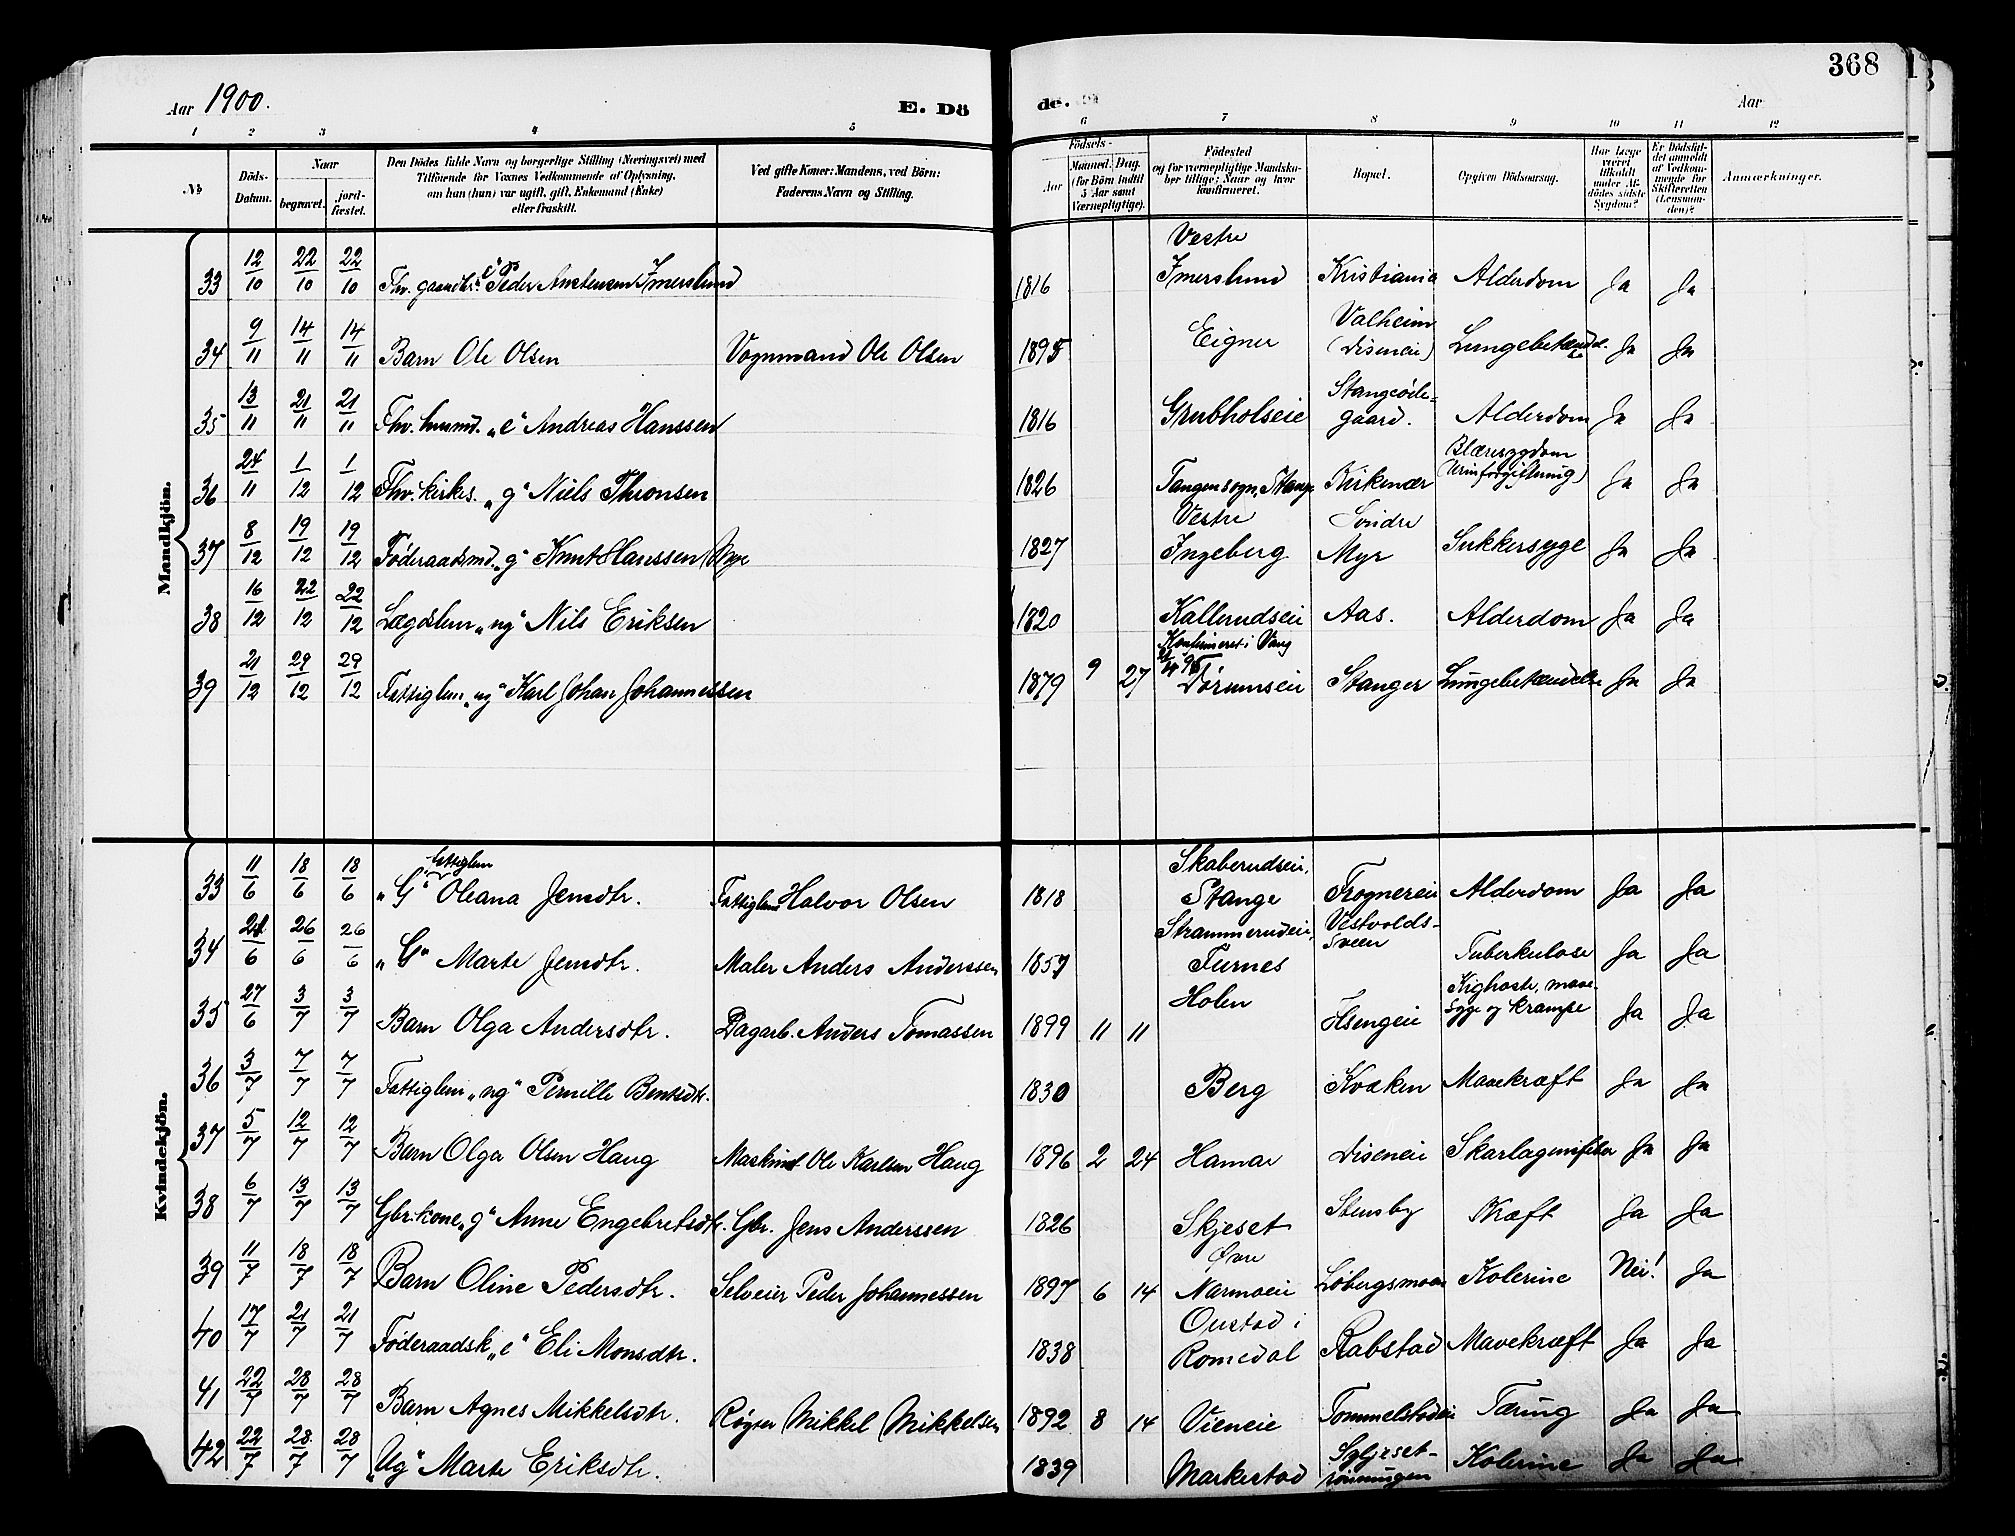 368
Aar 1900.
E. Dö
de.
Aar
1 2 3 4 5 6 7 8 9 10 11 12
№
Döds-Datum.
Naar
begravet.
jord-fæstet.
Den Dödes fulde Navn og borgerlige Stilling (Næringsvei) med
Tilföiende för Voxnes Vedkommende af Oplysning,
om han (hun) var ugift, gift, Enkemand (Enke)
eller fraskilt.
Ved gifte Koner: Mandens, ved Börn:
Faderens Navn og Stilling.
Födsels-
Aar
Maaned. Dag.
(for Börn indtil
5 Aar samt
Værnepligtige).
Födested
og for værnepligtige Mandska-
ber tillige: Naar og hvor
konfirmeret.
Bopæl.
Opgiven Dödsaarsag.
Har Læge
været
tilkaldt
under Af-
dödes sidste
Sygdom?
Er Dödsfal-
det anmeldt
af Vedkom-
mende for
Skifteretten
(Lensman-
den)?
Anmærkninger.
Mandkjön.
33 12/10 22/10 22/10 Fhv. gaardbr. "e" Peder Austensen Imerslund 1816 Vestre Imerslund Kristiania Alderdom Ja Ja
34 9/11 14/11 14/11 Barn Ole Olsen Vognmand Ole Olsen 1895 Eigner Valheim (Diseneie) Lungebetændelse Ja Ja
35 13/11 21/11 21/11 Fhv. husmd. "e" Andreas Hanssen 1816 Grubholseie Stangeøde-gaard. Alderdom Ja Ja
36 24/11 1/12 1/12 Fhv. kirkes. "g" Niels Thronsen 1826 Tangen sogn, Stange Kirkenær Blæresygdom (Urinforgiftning) Ja Ja
37 8/12 19/12 19/12 Føderaadsmd. "g" Knut Hanssen Mye 1827 Vestre Ingeberg Søndre Myr Sukkersyge Ja Ja
38 16/12 22/12 22/12 Lægdslem "ug" Nils Eriksen 1820 Kallerudseie Aas. Alderdom Ja Ja
39 21/12 29/12 29/12 Fattiglem "ug" Karl Johan Johannessen 1879 9 27 Konfirmeret i Vang 95 Tørumseie Stanger Lungebetændelse Ja Ja
Kvindekjön.
33 11/6 18/6 18/6 "G" fattiglem Oleana Jensdtr. Fattiglem Halvor Olsen 1818 Skaberudseie, Stange Frognereie Alderdom Ja Ja
34 21/6 26/6 26/6 "G" Marte Jensdtr. Maler Anders Anderssen 1857 Strammerudeie, Furnes Vestvolds-sveen Tuberkulose Ja Ja
35 27/6 3/7 3/7 Barn Olga Andersdtr. Dagarb. Anders Tomassen 1899 11 11 Holen Ilsengeie Kighoste, mave-syge og krampe Ja Ja
36 3/7 7/7 7/7 Fattiglem "ug" Pernille Bentsdtr. 1830 Berg Kvæken Mavekræft Ja Ja
37 5/7 12/7 12/7 Barn Olga Olsen Haug Maskinist Ole Karlsen Haug 1896 2 24 Hamar Diseneie Skarlagensfeber Ja Ja
38 6/7 13/7 13/7 Gbr.kone "g" Anne Engebretsdtr. Gbr. Jens Anderssen 1826 Skjeset Stensby Kræft Ja Ja
39 11/7 18/7 18/7 Barn Oline Pedersdtr. Selveier Peder Johannessen 1897 6 14 Øvre Narmoeie Løbergsmoen Kolerine Nei! Ja
40 17/7 21/7 21/7 Føderaadsk. "e" Eli Monsdtr. 1838 Oustad i Romedal Rabstad Mavekræft Ja Ja
41 22/7 28/7 28/7 Barn Agnes Mikkelsdtr. Røgter Mikkel Mikkelsen 1892 8 14 Vieneie Tommelstadeie Tæring Ja Ja
42 22/7 28/7 28/7 "Ug" Marte Eriksdtr. 1839 Markestad Skjeset-rønningen Kolerine Ja Ja